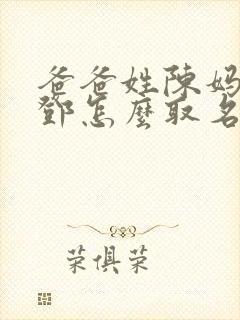 爸爸姓陳媽
鄧怎麼取名
荣俱荣